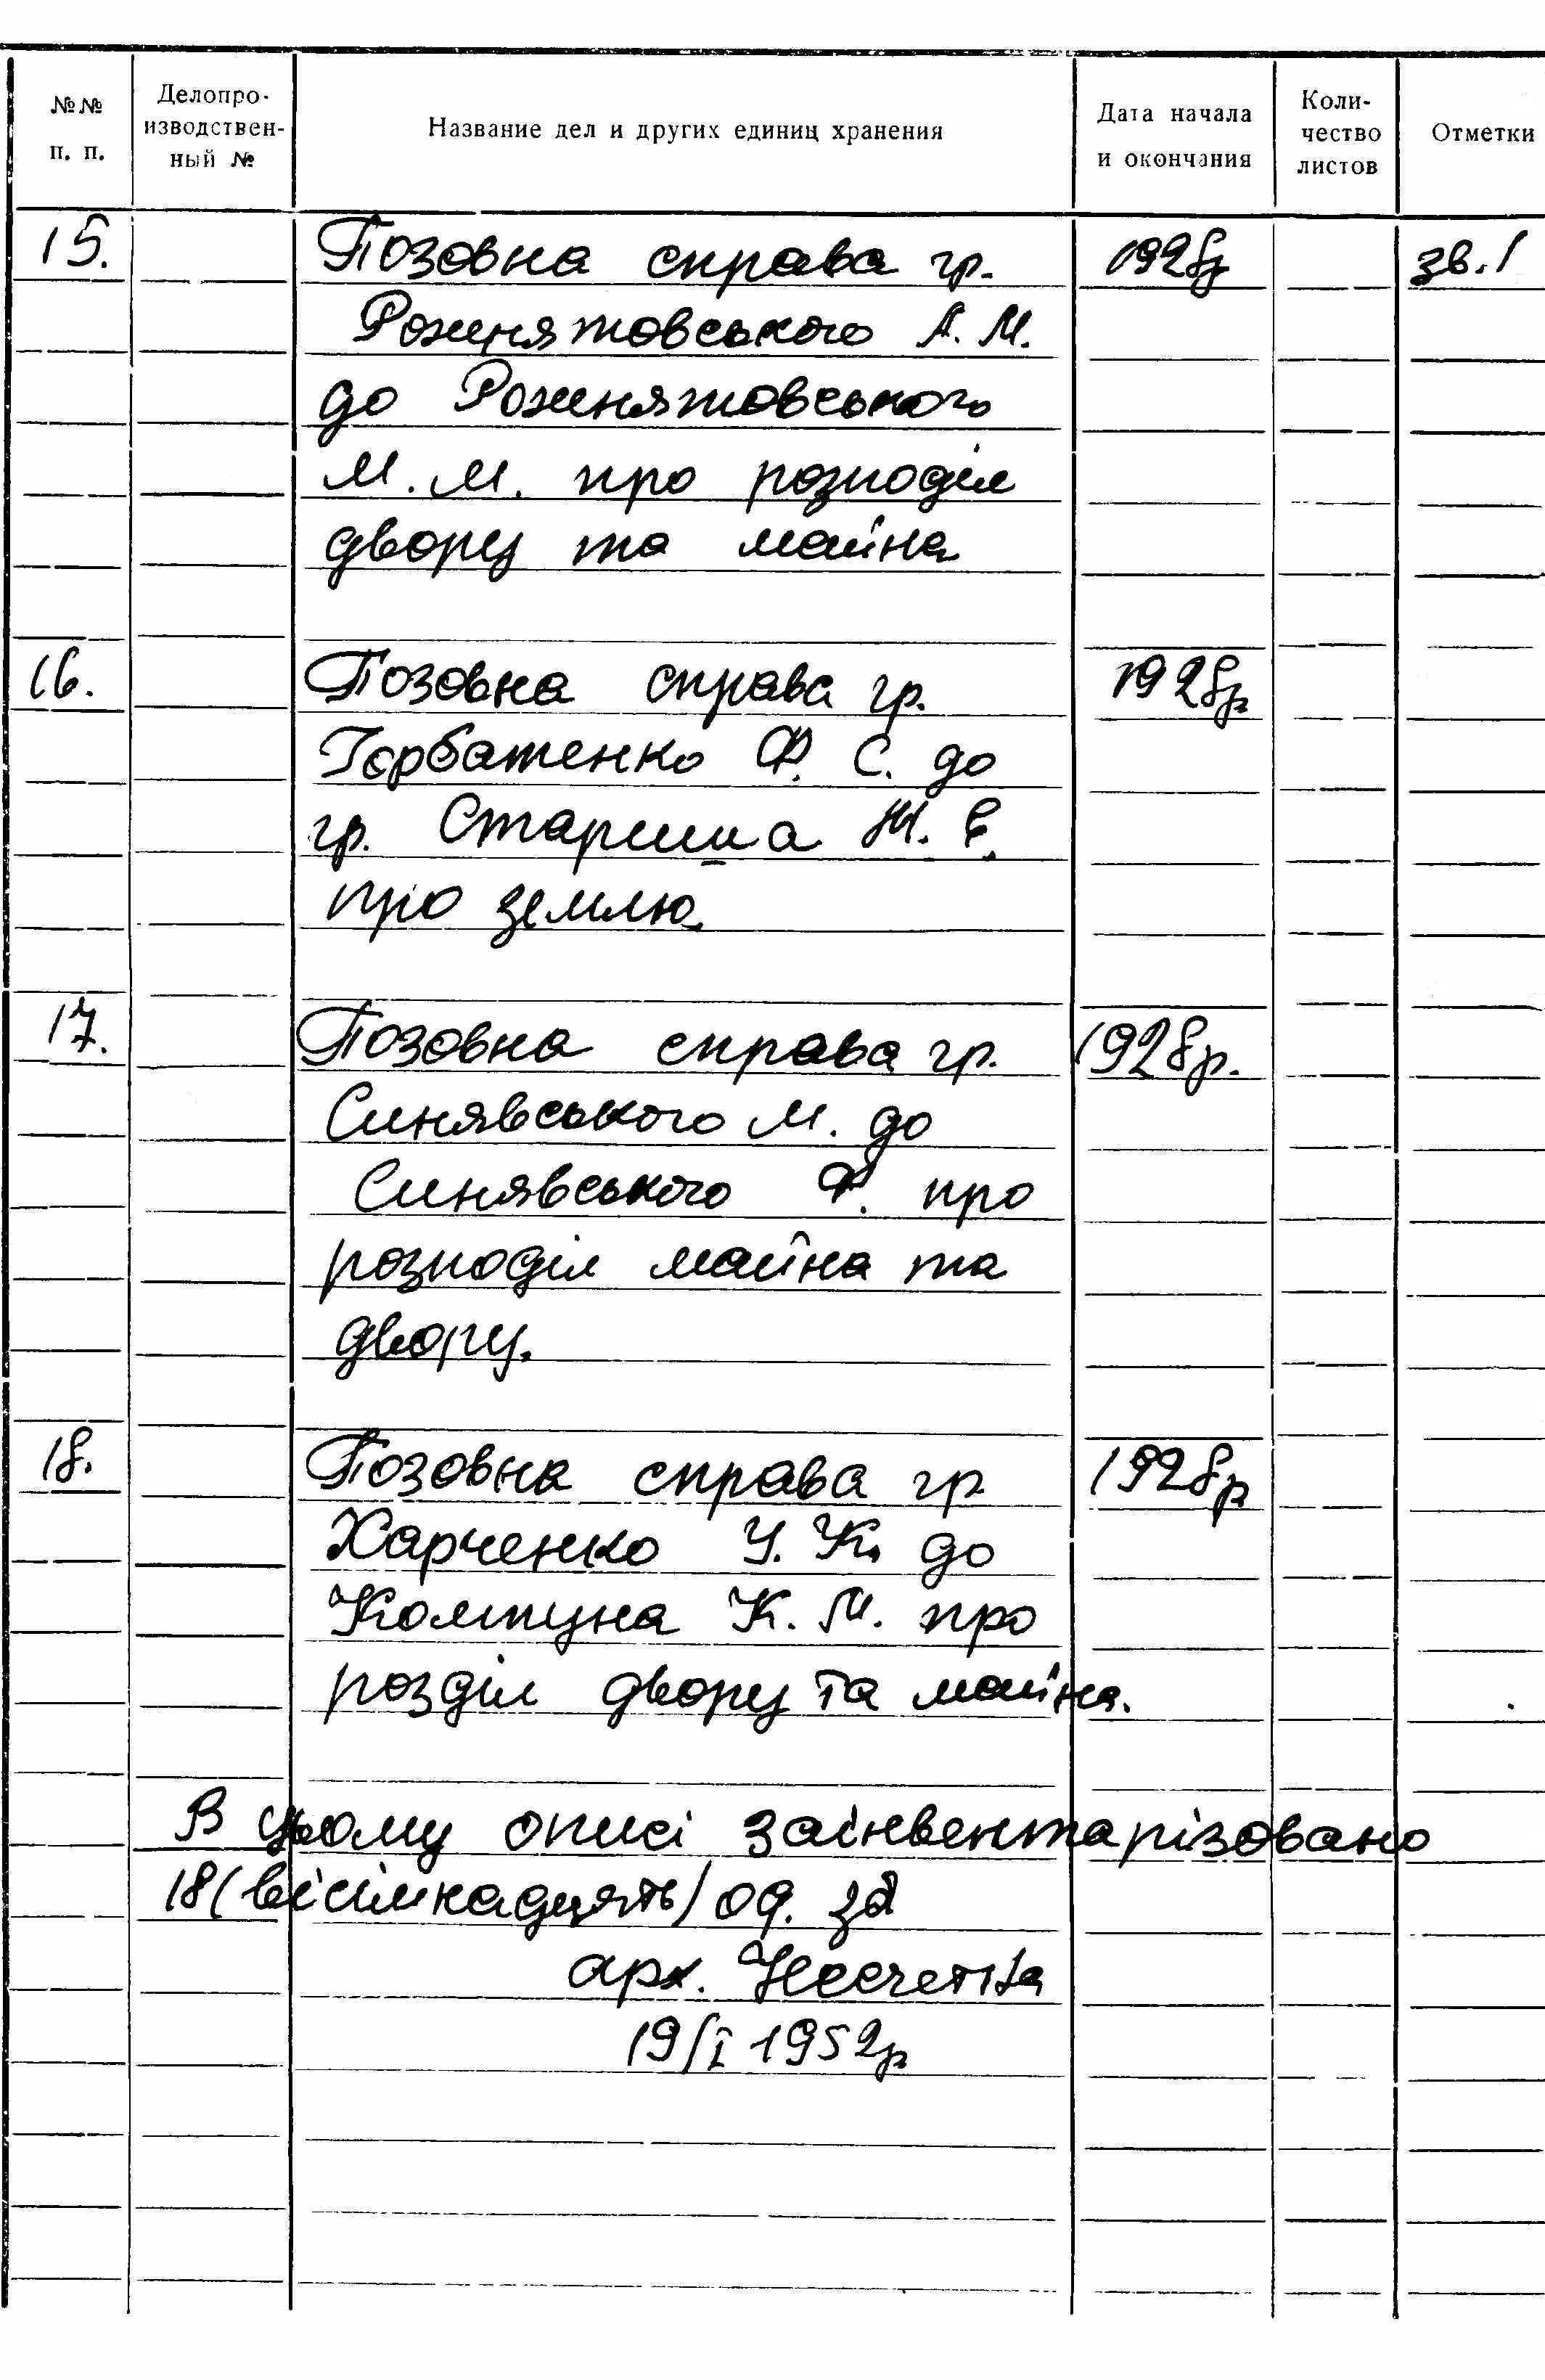 №№ п. п. Делопро- изводствен- ный № Название дел и других единиц хранения Дата начала и окончания Коли- чество листов Отметки
15. Позовна справа гр. 1928р зв. 1
Роженятовського А. М.
до Роженятовського
М. М. про розподіл
двору та майна
16. Позовна справа гр. 1928р
Горбатенко Ф. С. до
гр. Старшиша Ж. Є.
про землю
17. Позовна справа гр. 1928р.
Синявського М. до
Синявського Ф. про
розподіл майна та
двору.
18. Позовна справа гр 1928р
Харченко У. К. до
Комтуна К. М. про
розділ двору та майна.
В цьому описі заінвентарізовано
18 (вісімнадцять) од. зб
арх.
19/I 1952р